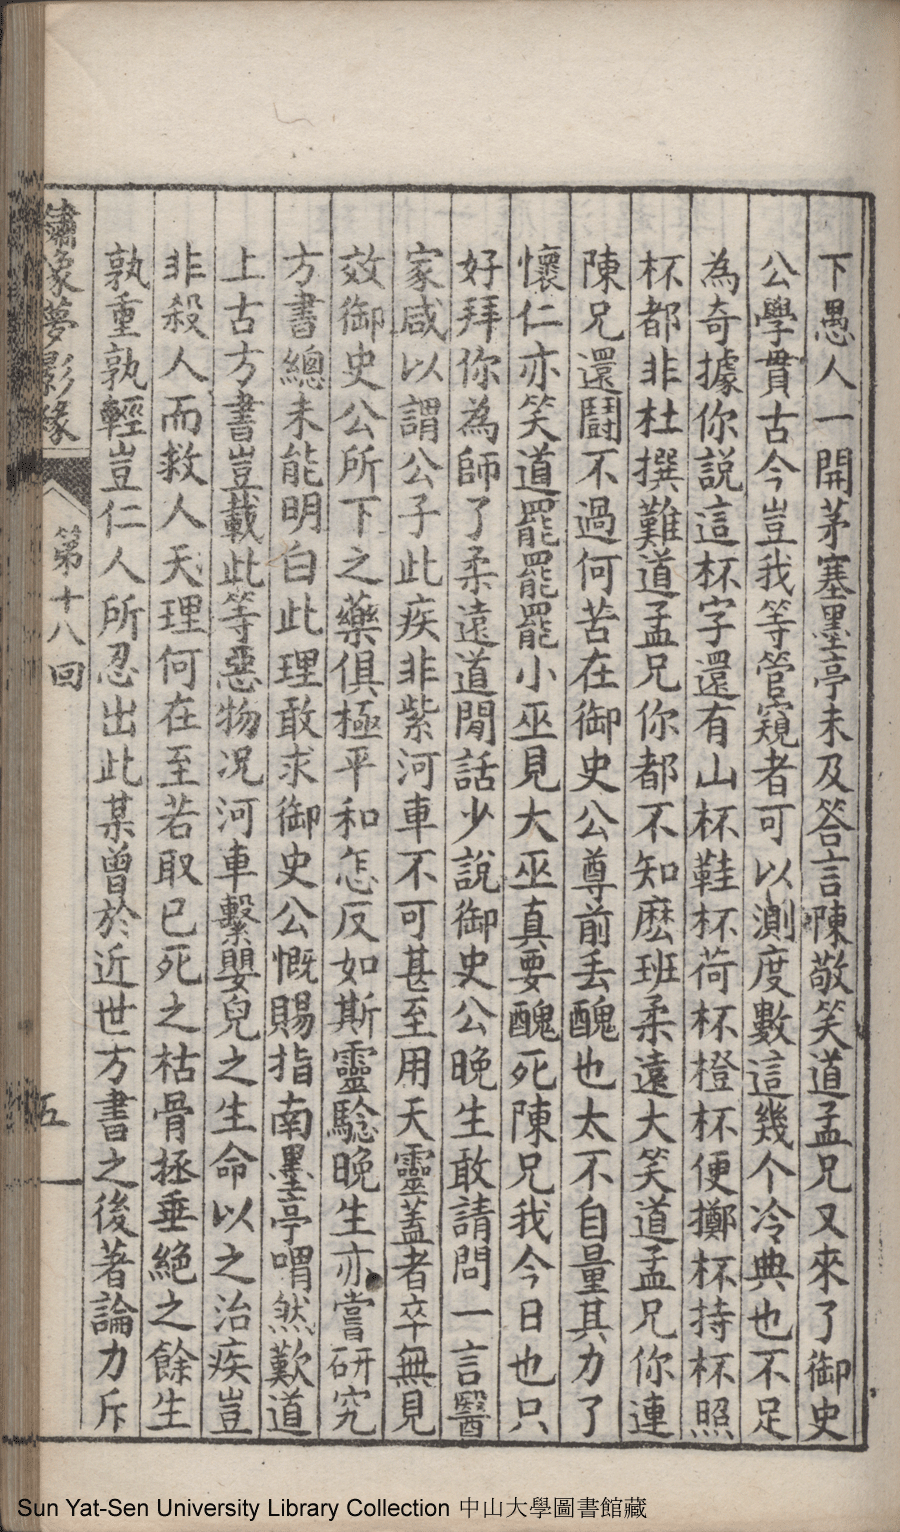 下愚人一開茅塞墨亭未及答言陳敬笑道孟兄又來了御史
公學貫古今豈我等管窺者可以測度數這幾个冷典也不足
為奇據你說這杯字還有山杯鞋杯荷杯橙杯便擲杯持杯照
杯都非杜撰難道孟兄你都不知麽班柔遠大笑道孟兄你連
陳兄還鬪不過何苦在御史公尊前丢醜也太不自量其力了
懷仁亦笑道罷罷罷小巫見大巫真要醜死陳兄我今日也只
好拜你為師了柔遠道閒話少說御史公晚生敢請問一言醫
家咸以謂公子此疾非紫河車不可甚至用天靈蓋者卒無見
效御史公所下之藥俱極平和怎反如斯靈騐晚生亦嘗研究
方書總未能明白此理敢求御史公慨賜指南墨亭喟然歎道
上古方書豈載此等惡物况河車繫嬰兒之生命以之治疾豈
非殺人而救人天理何在至若取已死之枯骨拯垂絕之餘生
孰重孰輕豈仁人所忍出此某曾於近世方書之後著論力斥
繡象夢影緣
第十八回
五
Sun Yat-Sen University Library Collection 中山大學圖書館藏